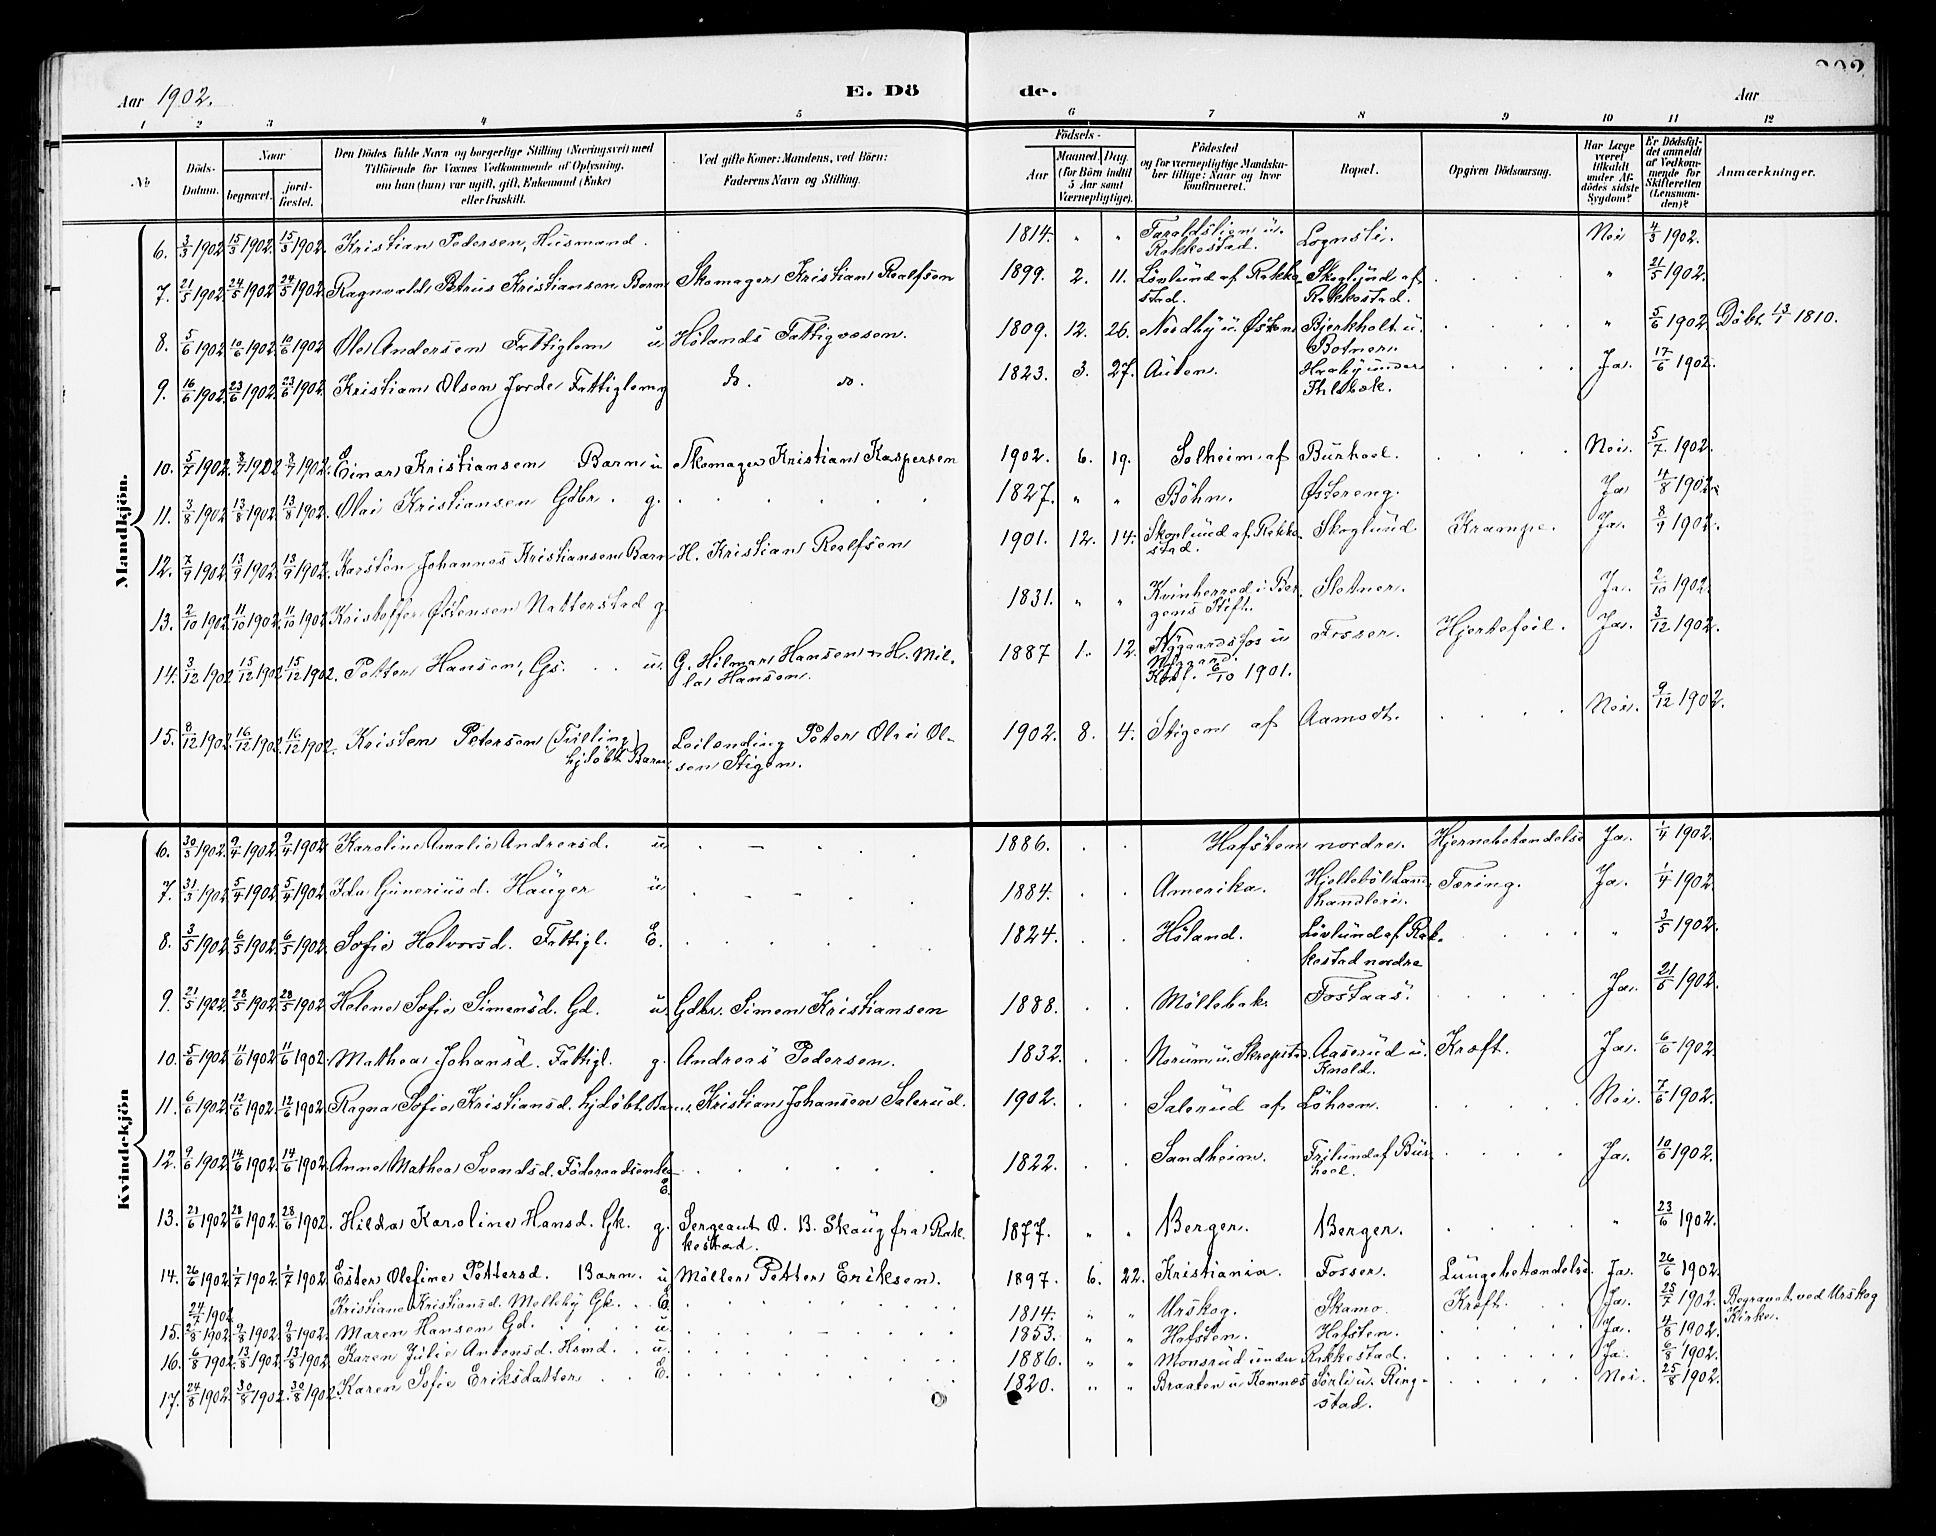 202
Aar 1902. E. Dö de. Aar
1 2 3 4 5 6 7 8 9 10 11 12
No Döds-Datum. Naar begravet. jord-fæstet. Den Dödes fulde Navn og borgerlige Stilling (Næringsvei) med Tilföiende for Voxnes Vedkommende af Oplysning, om han (hun) var ugift, gift, Enkemand (Enke) eller fraskilt. Ved gifte Koner: Mandens, ved Börn: Faderens Navn og Stilling. Födsels- Aar Maaned. Dag. (for Börn indtil 5 Aar samt Værnepligtige). Födested og for værnepligtige Mandska-ber tillige: Naar og hvor konfirmeret. Bopæl. Opgiven Dödsaarsag. Har Læge været tilkaldt under Af-dödes sidste Sygdom? Er Dödsfal-det anmeldt af Vedkom-mende for Skifteretten (Lensman-den)? Anmærkninger.
Mandkjön.
6. 3/3 1902 15/3 1902. 15/3 1902. Kristian Pedersen, Husmand. 1814. " " Taraldstien u. Rakkestad. Lognsli. Nei 4/3 1902.
7. 21/5 1902 24/5 1902 24/5 1902. Ragnvald Petrus Kristiansen Barn Skomager Kristian Roalfsen 1899. 2. 11. Lövlund af Rakke-stad. Skoglund af Rakkestad. " 21/5 1902.
8. 5/6 1902 10/6 1902 10/6 1902 Ole Andersen Fattiglem u Hölands Fattigvæsen. 1809. 12. 26. Nordby u. Østen Bjerkholt u. Botner. " 5/6 1902 Döbt 13/1 1810.
9. 16/6 1902 23/6 1902 23/6 1902. Kristian Olsen Jorde Fattiglem g do. do. 1823. 3. 27. Auten. Haaby under Ihlebæk. Ja. 17/6 1902.
10. 5/7 1902. 8/7 1902 8/7 1902. Einar Kristiansen Barn u Skomager Kristian Kaspersen 1902. 6. 19. Solheim af Burhol. Nei. 5/7 1902.
11. 3/8 1902 13/8 1902. 13/8 1902. Olai Kristiansen Gdbr. g. 1827. " " Böhn. Østereng. Ja 4/8 1902.
12. 7/9 1902 13/9 1902. 13/9 1902. Karsten Johannes Kristiansen Barn H. Kristian Roalfsen 1901. 12. 14. Skoglund af Rakke-stad. Skoglund Krampe. Ja. 8/9 1902.
13. 2/10 1902 11/10 1902 11/10 1902. Kristoffer Østensen Natterstad g. 1831. " " Kvinherred i Ber-gens Stift. Sletner. Ja. 2/10 1902.
14. 3/12 1902 15/12 1902 15/12 1902. Petter Hansen, Gs. u. G. Hilmar Hansen n H. Mil-la Hansen. 1887 1. 12. Nygaardsfos u Konf. 6/10 1901. Fosser. Hjertefeil. Ja. 3/12 1902.
15. 8/12 1902. 16/12 1902. 16/12 1902. Kristen Petersen (Tvilling) hjdöbt Barn Leilending Peter Olai Ol-sen Stigen. 1902. 8. 4. Stigen af Aamodt. Nei. 9/12 1902.
Kvindekjön
6. 30/3 1902. 9/4 1902. 9/4 1902. Karoline Amalie Andreasd. u 1886. Hafsten nordre. Hjernebetændelse Ja. 1/4 1902.
7. 31/3 1902 5/4 1902 5/4 1902. Ida Guneriusd. Hauger u 1884. Amerika. Hjelleböl Land-handleri. Tæring. Ja. 1/4 1902
8. 3/5 1902 6/5 1902. 6/5 1902. Sofie Halvorsd. Fattigl. E. 1824. Höland. Lövlund af Rak-kestad nordre " 3/5 1902.
9. 21/5 1902. 28/5 1902 28/5 1902 Helene Sofie Simensd. Gd. u. Gdbr. Simen Kristiansen 1888. Möllebak. Fostaas. Ja. 21/5 1902.
10. 5/6 1902 11/6 1902 11/6 1902. Mathea Johansd. Fattigl. g. Andreas Pedersen. 1832. Norum u. Skrepstad Aaserud u. Knold. Kræft. Ja. 6/6 1902.
11. 6/6 1902. 12/6 1902. 12/6 1902. Ragna Sofie Kristiansd. hjdöbt Barn Kristian Johansen Salerud. 1902. Salerud af Löhren. Nei. 7/6 1902.
12. 9/6 1902 14/6 1902. 14/6 1902. Anne Mathea Svendsd. Föderaadsenke E. 1822. Sandheim. Frilund af Bur-hol. Ja. 10/6 1902.
13. 21/6 1902 28/6 1902. 28/6 1902. Hilda Karoline Hansd. Gk. g. Sergeant O. B. Skaug fra Rak-kestad. 1877. " " Berger. Berger. " 23/6 1902.
14. 26/6 1902 1/7 1902. 1/7 1902 Ester Olefine Pettersd. Barn. u Möller Petter Eriksen. 1897. 6. 22. Kristiania. Fosser. Lungebetændelse Ja. 26/6 1902.
24/7 1902. Kristiane Kristiansd. Molleby Gk. E. 1814. " " Urskog. Skamo. Kræft. Ja. 25/7 1902. Begravet ved Urskog Kirke.
15. 2/8 1902. 9/8 1902. 9/8 1902. Maren Hansen Gd. u 1853. " " Hafsten. Hafsten. Ja. 4/8 1902.
16. 6/8 1902. 13/8 1902 13/8 1902 Karen Julie Antonsd. Hsmd. u. 1886. " " Monsrud under Rakkestad. Ja. 6/8 1902.
17. 24/8 1902. 30/8 1902. 30/8 1902. Karen Sofie Eriksdatter E. 1820. " " Braaten u Komnæs Sörli u. Ring-stad. Nei. 25/8 1902.